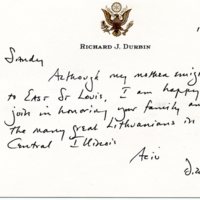 RICHARD J. DURBIN
Sandy
Although my mother emig
to East St Louis, I am happy
join in honoring your family an
the many great Lithuanians in
Central Illinois
Aciu